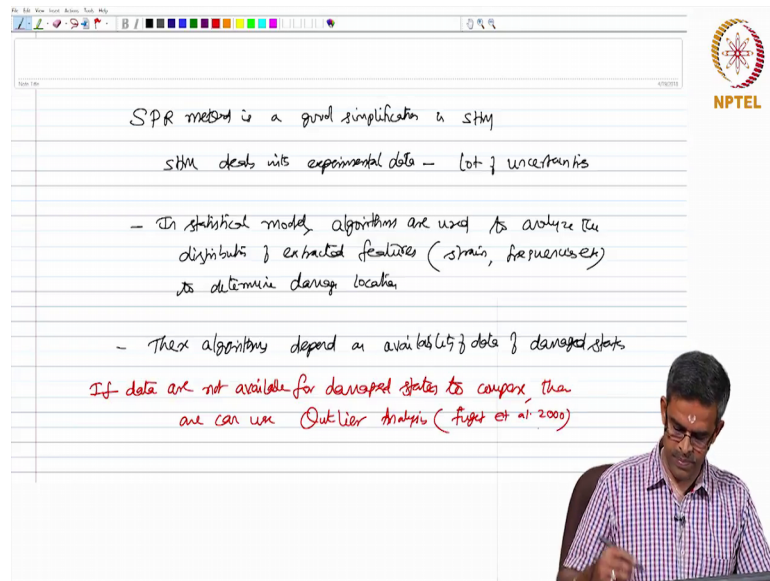 File Edit View Insert Actions Tools Help
B I
Note Title
4/19/2018
NPTEL
SPR method is a good simplification in SHM
SHM deals with experimental data - lot of uncertainties
- In statistical models, algorithms are used to analyze the
distribution of extracted features (strain, frequencies etc)
to determine damage location
- These algorithms depend on availability of data of damaged states
If data are not available for damaged states to compare, then
one can use Outlier Analysis ( et al. 2000)